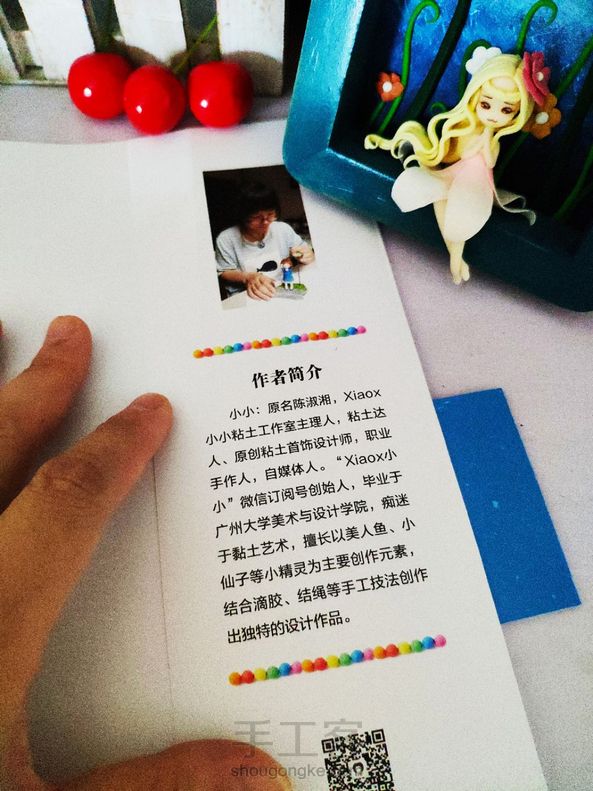 作者简介
小小：原名陈淑湘，Xiaox
小小粘土工作室主理人，粘土达
人、原创粘土首饰设计师，职业
手作人，自媒体人。“Xiaox小
小”微信订阅号创始人，毕业于
广州大学美术与设计学院，痴迷
于黏土艺术，擅长以美人鱼、小
仙子等小精灵为主要创作元素，
结合滴胶、结绳等手工技法创作
出独特的设计作品。
手工客